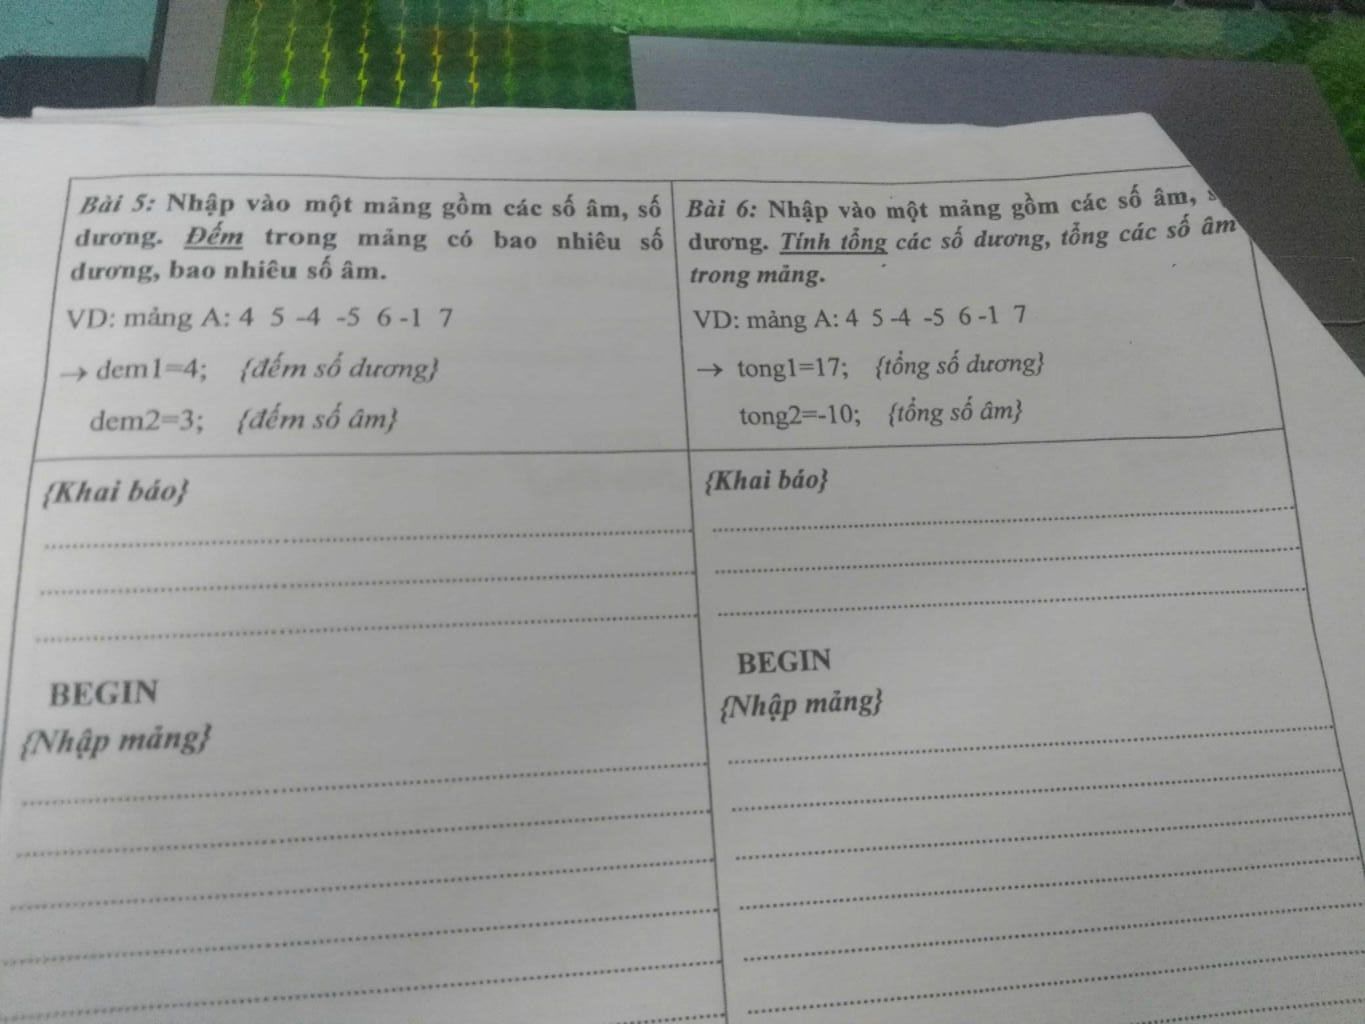 Bài 5: Nhập vào một mảng gồm các số âm, số
dương. Đếm trong mảng có bao nhiêu số
dương, bao nhiêu số âm.
VD: mảng A: 4 5 -4 -5 6 -1 7
→ dem1=4; {đếm số dương}
dem2=3; {đếm số âm}
{Khai báo}
BEGIN
{Nhập mảng}
Bài 6: Nhập vào một mảng gồm các số âm,
dương. Tính tổng các số dương, tổng các số âm
trong mảng.
VD: mảng A: 4 5 -4 -5 6 -1 7
→ tong1=17; {tổng số dương}
tong2=-10; {tổng số âm}
{Khai báo}
BEGIN
{Nhập mảng}